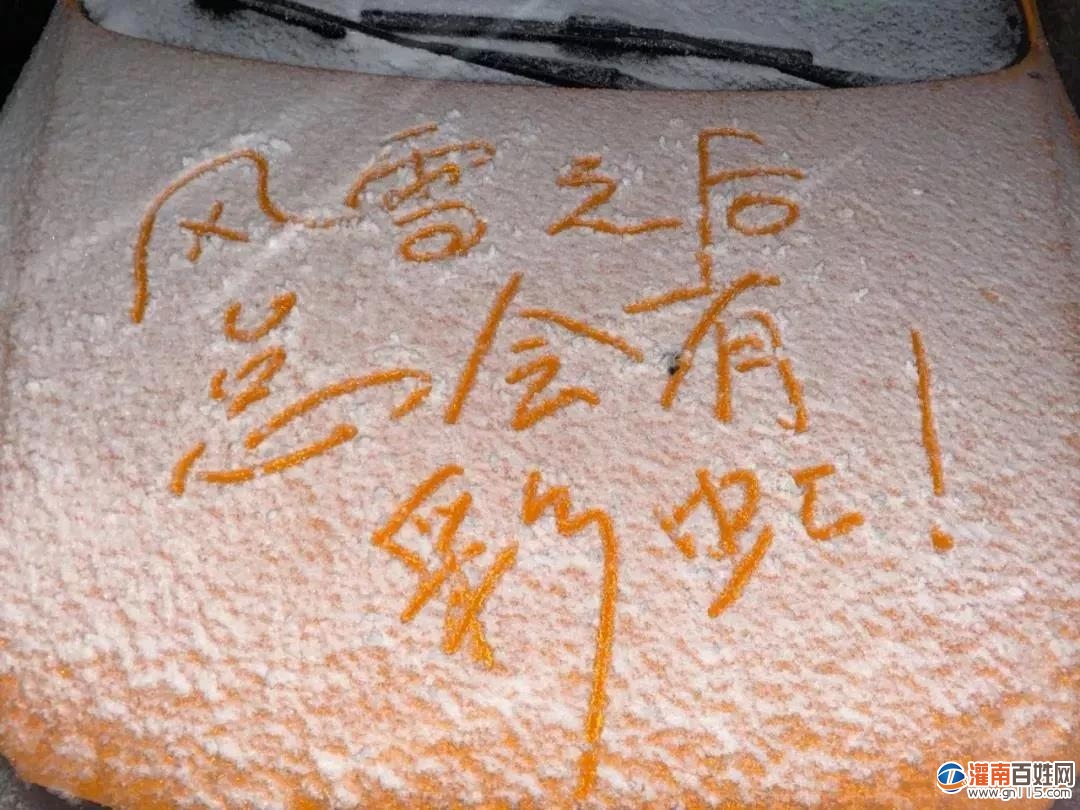 风雪之后
总会有
彩虹!
灌南百姓网
www.gn115.com